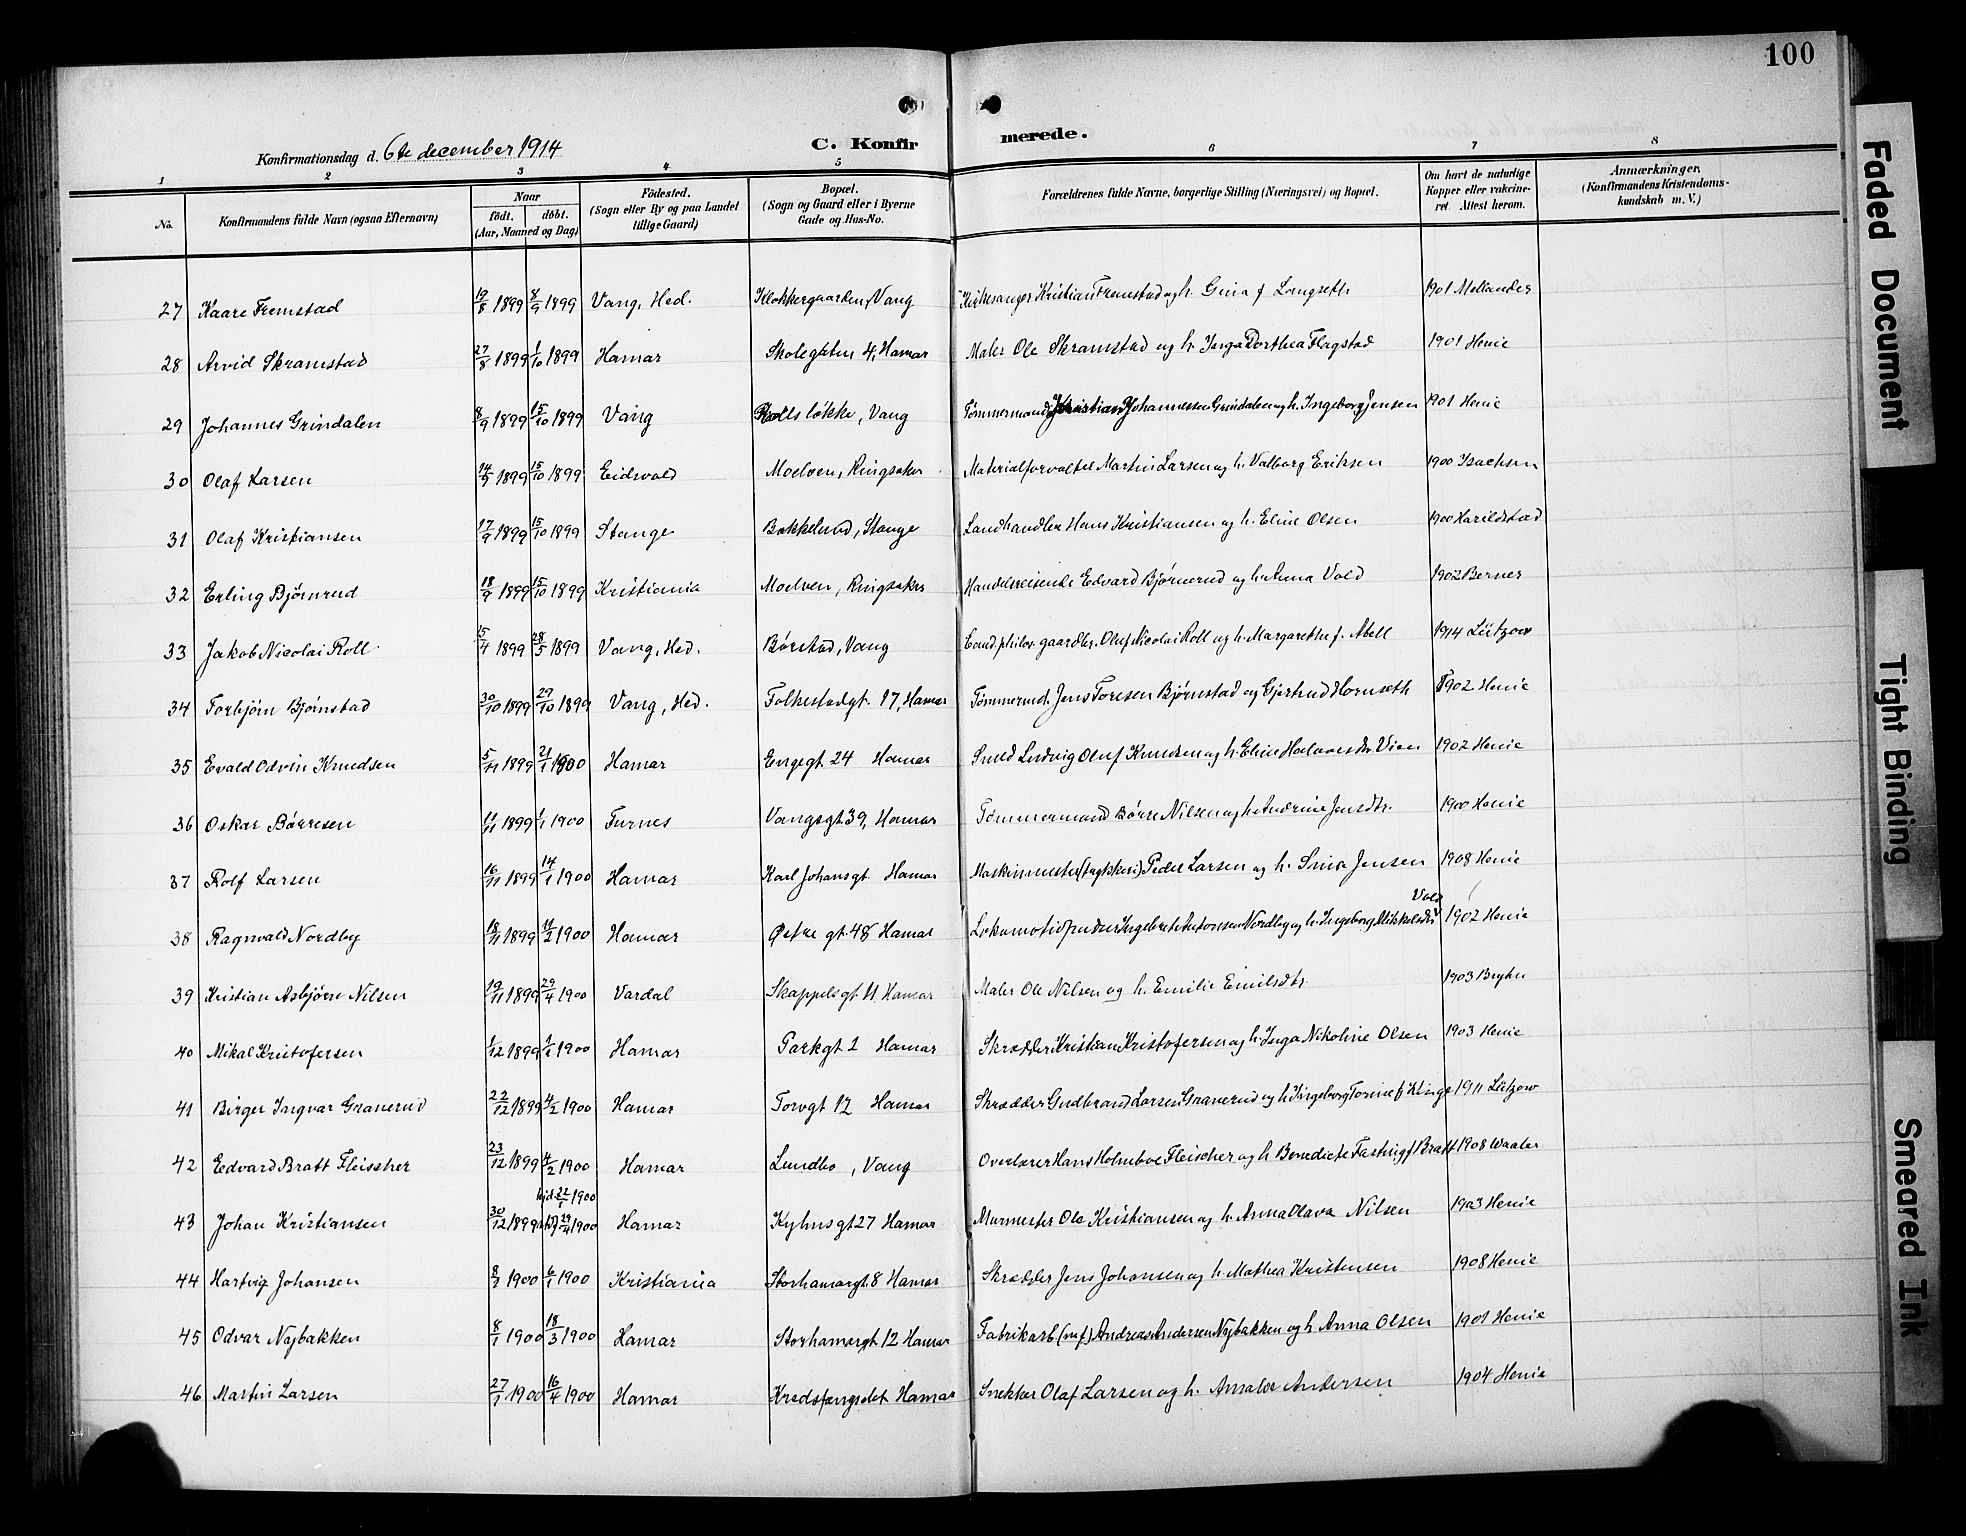 100
Konfirmationsdag d. 6te december 1914
C. Konfirmerede.
1 2 3 4 5 6 7 8
No.
Konfirmandens fulde Navn (ogsaa Efternavn)
Naar
födt. döbt.
(Aar, Maaned og Dag)
Födested.
(Sogn eller By og paa Landet
tillige Gaard)
Bopæl.
(Sogn og Gaard eller i Byerne
Gade og Hus-No.
Forældrenes fulde Navne, borgerlige Stilling (Næringsvei) og Bopæl.
Om havt de naturlige
Kopper eller vakcine-
ret. Attest herom.
Anmærkninger.
(Konfirmandens Kristendoms-
kundskab m. V.)
27 Kaare Fremstad 19/8 1899 8/9 1899 Vang, Hed. Klokkergaarden, Vang Kirkesanger Kristian Fremstad og h. Gina f Langseth 1901 Mellander
28 Arvid Skramstad 27/8 1899 1/10 1899 Hamar Skolegaten 4, Hamar Maler Ole Skramstad og h. Inga Dorthea Flagstad 1901 Henie
29 Johannes Grindalen 8/9 1899 15/10 1899 Vang Rolls løkke, Vang Tømmermand Kristian Johannessen Grindalen og h. Ingeborg Jensen 1901 Henie
30 Olaf Larsen 14/9 1899 15/10 1899 Eidsvold Moelven, Ringsaker Materialforvalter Martin Larsen og h. Valborg Eriksen 1900 Isachsen
31 Olaf Kristiansen 17/9 1899 15/10 1899 Stange Bakkelund, Stange Landhandler Hans Kristiansen og h. Eline Olsen 1900 Harildstad
32 Erling Bjørnrud 18/9 1899 15/10 1899 Kristiania Moelven, Ringsaker Handelsreisende Edvard Bjørnerud og h. Anna Vold 1902 Berner
33 Jakob Nicolai Roll 15/4 1899 28/5 1899 Vang, Hed. Børstad, Vang Cand. philos. gaardbr. Oluf Nicolai Roll og h. Margarethe f. Abell 1914 Lützow
34 Torbjørn Bjørnstad 30/10 1899 29/10 1899 Vang, Hed. Folkestadgt. 17, Hamar Tømmermd. Jens Toresen Bjørnstad og Gjertrud Hornseth 1902 Henie
35 Evald Odvin Knudsen 5/11 1899 21/1 1900 Hamar Engegt. 24 Hamar Smed Ludvig Oluf Knudsen og h. Eline Halvorsdtr. Vien 1902 Henie
36 Oskar Børresen 11/11 1899 1/1 1900 Furnes Vangsgt. 39, Hamar Tømmermand Børre Nilsen og h. Andrine Jensdtr. 1900 Henie
37 Rolf Larsen 16/11 1899 14/1 1900 Hamar Karl Johansgt Hamar Maskinmester Peder Larsen og h. Sina Jensen 1908 Henie
Vold
38 Ragnvald Nordby 18/11 1899 11/2 1900 Hamar Østre gt. 48 Hamar Lokomotivpudser Ingebret Antonsen Nordby og h. Ingeborg Mikkelsdtr 1902 Henie
39 Kristian Asbjørn Nilsen 19/11 1899 29/4 1900 Vardal Skappelsgt. 11 Hamar Maler Ole Nilsen og h. Emilie Emilsdtr. 1903 Bryhn
40 Mikal Kristofersen 1/12 1899 1/1 1900 Hamar Parkgt 1 Hamar Skrædder Kristian Kristofersen og h. Inga Nikoline Olsen 1903 Henie
41 Birger Ingvar Granerud 22/12 1899 4/2 1900 Hamar Torvgt 12 Hamar Skrædder Gudbrand Larsen Granerud og h. Ingeborg Torine f. Klinge 1911 Lützow
42 Edvard Bratt Fleischer 23/12 1899 4/2 1900 Hamar Lundbo, Vang Overlærer Hans Holmboe Fleischer og h. Benedicte Fasting f. Bratt 1908 Waaler
hjd. 22/1 1900
43 Johan Kristiansen 30/12 1899 29/4 1900 Hamar Kyhnsgt 27 Hamar Murmester Ole Kristiansen og h. Anna Olava Nilsen 1903 Henie
44 Hartvig Johansen 8/1 1900 6/1 1900 Kristiania Storhamargt. 8 Hamar Skrædder Jens Johansen og h. Mathea Kristensen 1908 Henie
45 Odvar Nybakken 8/1 1900 18/3 1900 Hamar Storhamargt 12 Hamar Fabrikarb. Andreas Andersen Nybakken og h. Anna Olsen 1901 Henie
46 Martin Larsen 27/1 1900 16/4 1900 Hamar Kredsfængslet Hamar Snekker Olaf Larsen og h. Amalie Andersen 1904 Henie
Faded Document
Tight Binding
Smeared Ink